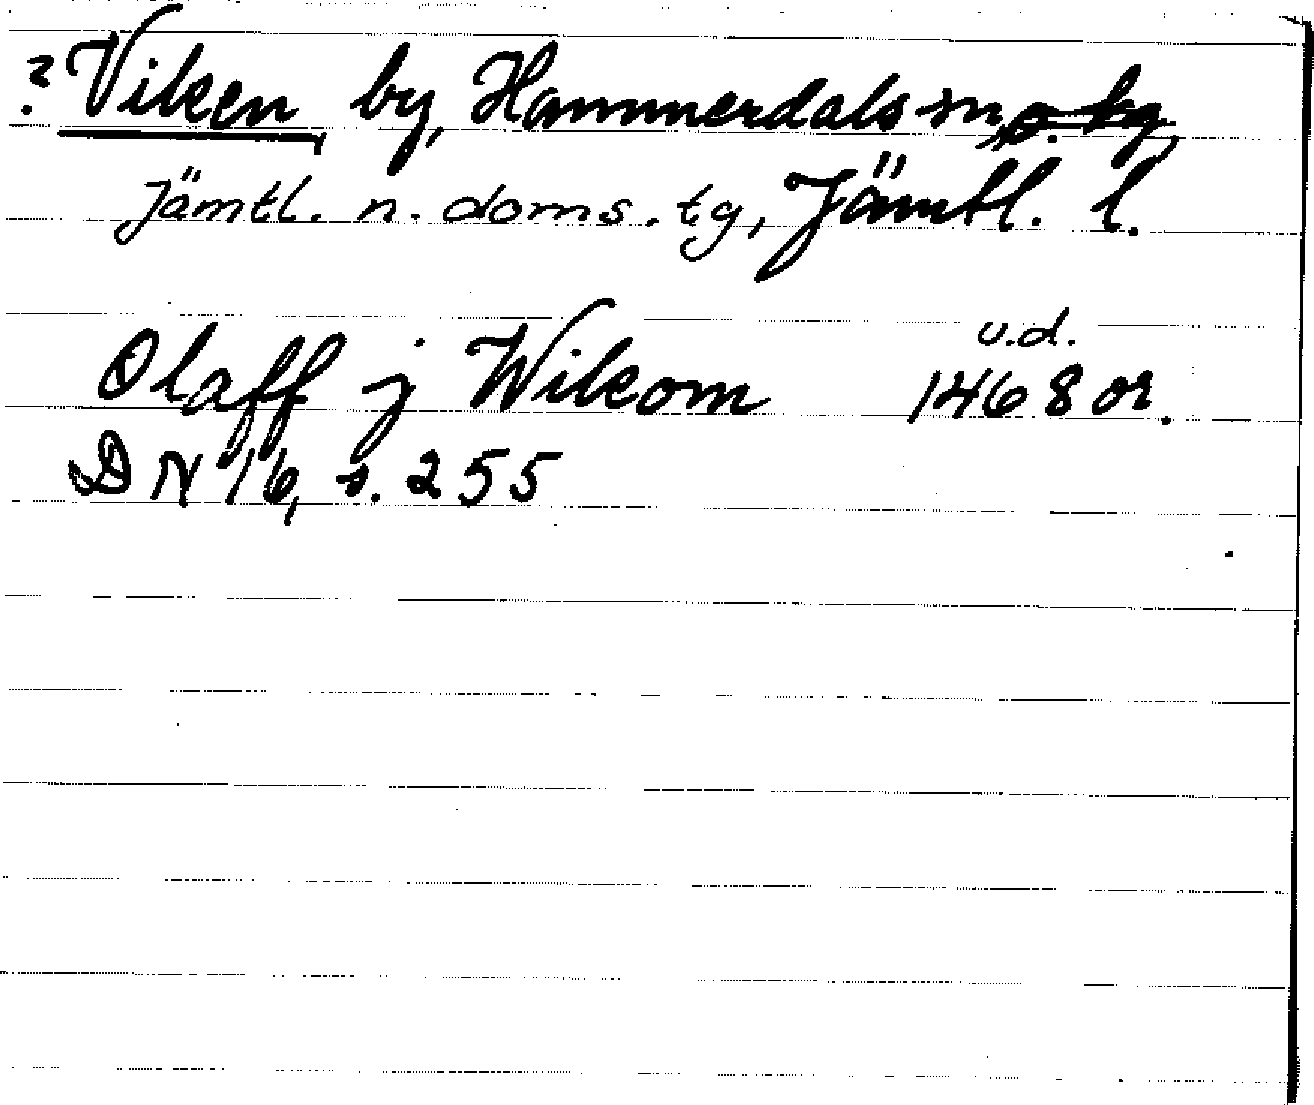 ? Viken by, Hammerdals sn, o. tg,
Jämtl. n. doms. tg, Jämtl. l.
u.d.
Olaff j Wikom 1468 or.
DN 16, s. 255